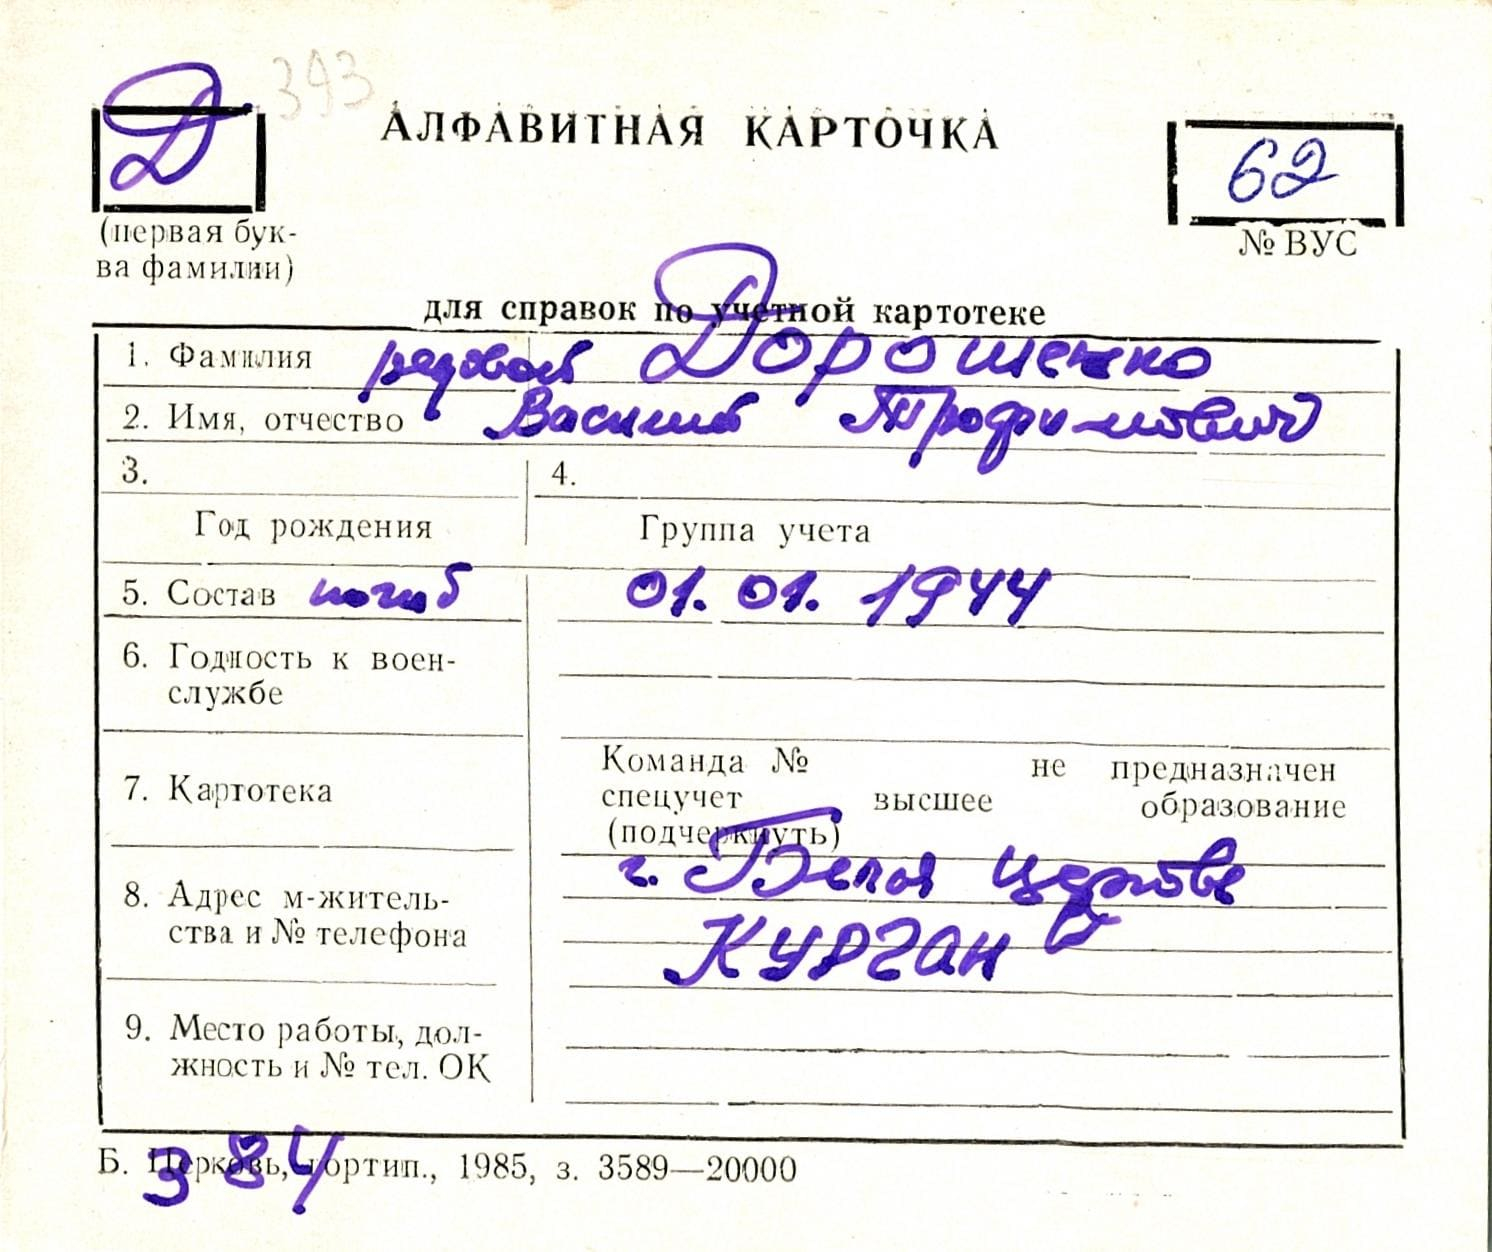 Д 393
АЛФАВИТНАЯ КАРТОЧКА
62
(первая бук-
ва фамилии)
№ ВУС
для справок по учетной картотеке
1. Фамилия рядовой Дорошенко
2. Имя, отчество Василий Трофимович
3. 4.
Год рождения Группа учета
5. Состав погиб 01.01.1944
6. Годность к воен-
службе
Команда № не предназначен
7. Картотека спецучет высшее образование
(подчеркнуть)
8. Адрес м-житель-
ства и № телефона
г. Белая Церковь
КУРГАН
9. Место работы, дол-
жность и № тел. ОК
Б. Церковь, гортип., 1985, з. 3589—20000
384